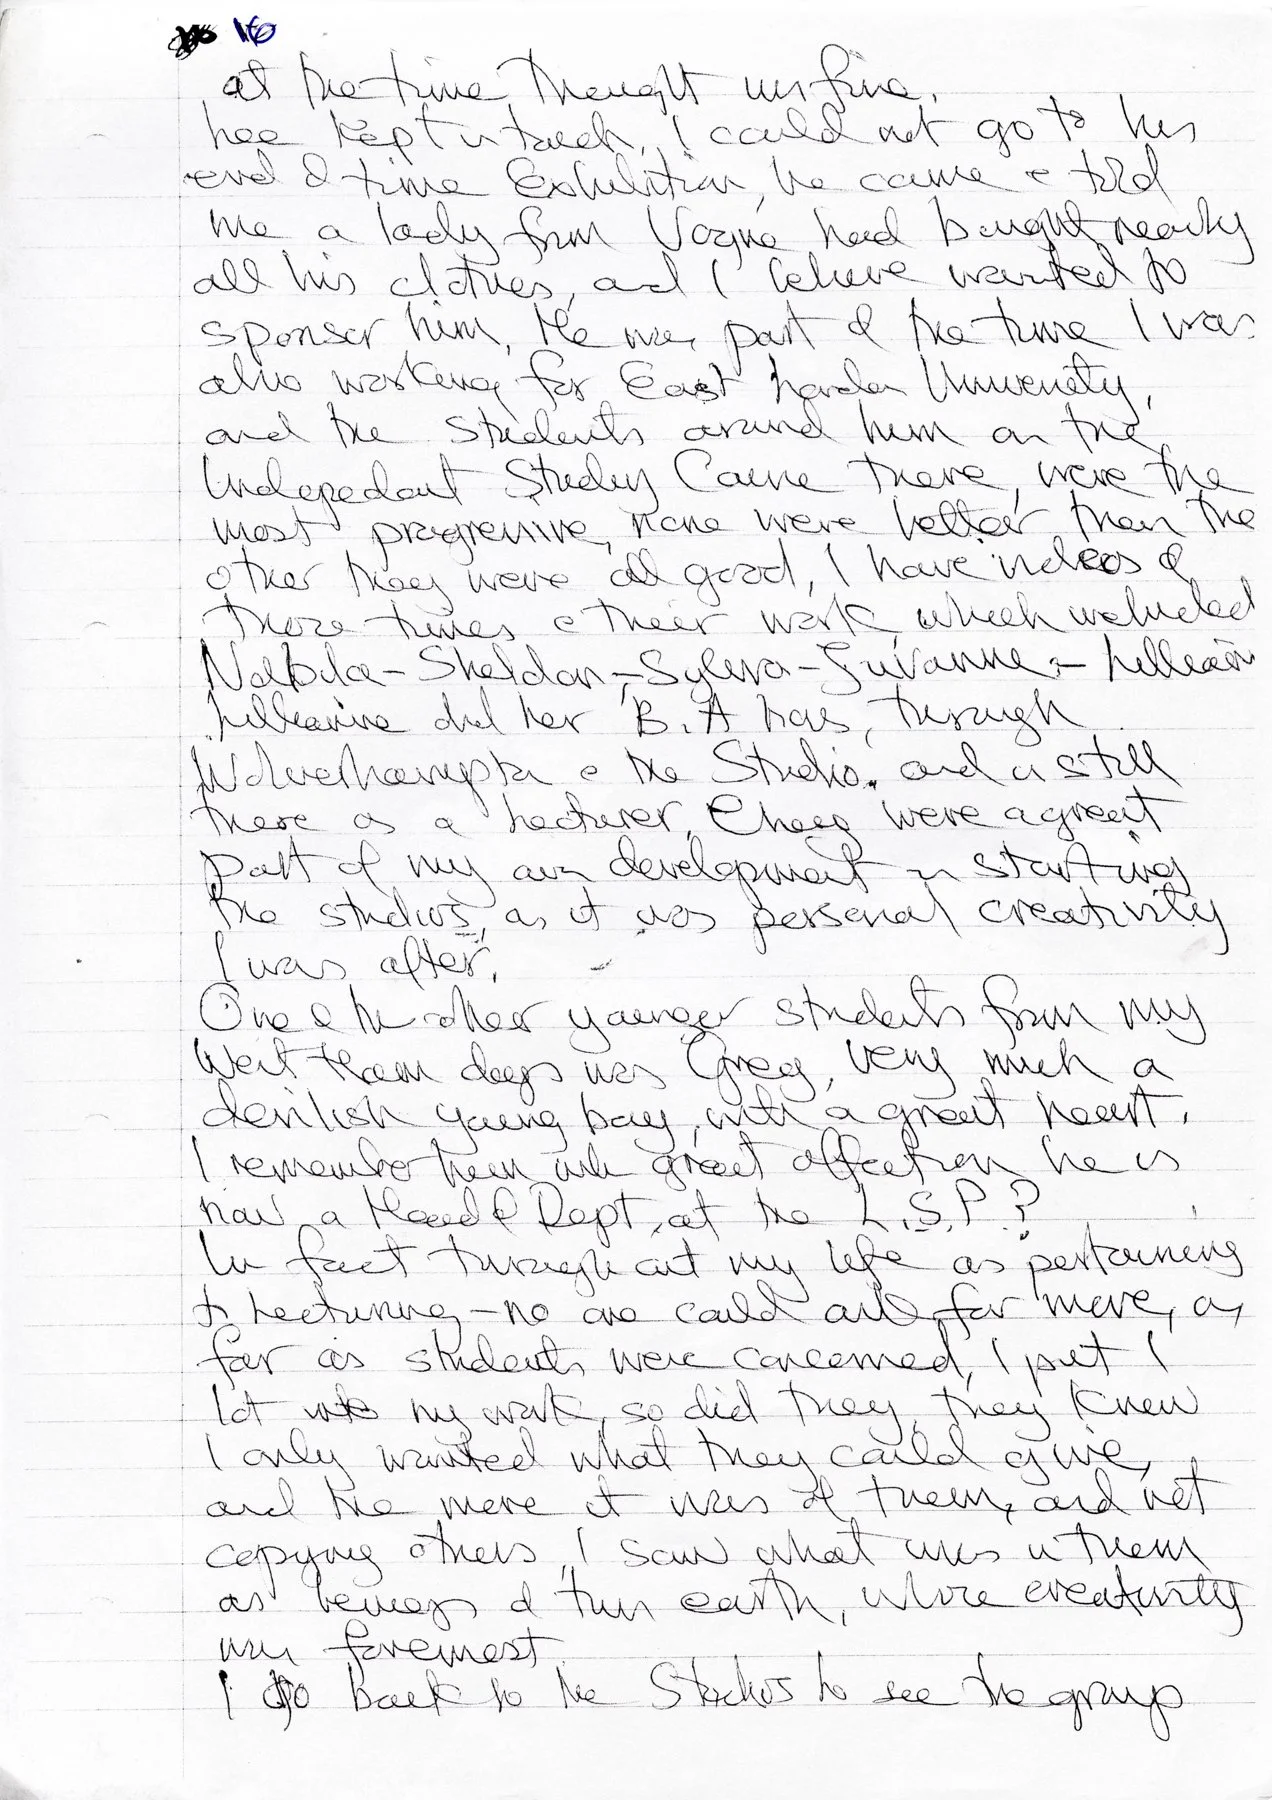 16
at the time thought us fine.
kept in touch, I could not go to his
end of time Exhibition, he came & told
me a lady from Vogue had bought nearly
all his clothes, and I believe wanted to
sponser him, He was part of the time I was
also working for East London University,
and the students around him on the
Indepedant Study Course there, were the
most progressive, none were better than the
other they were all good, I have videos of
those times & their work, which included
Sheldon - Sylvia - Suzanne -
did her B.A hons, through
Wolverhampton & the Studio. and is still
there as a Lecturer, They were a great
part of my own development in starting
the studios, as it was personal creativity
I was after.
One of the other younger students from my
West Ham days was Greg, very much a
devilish young boy, with a great heart.
I remember them with great affection he is
now a Head of Dept, at the L.S.P?
In fact throughout my life as pertaining
to Lecturing - no one could ask for more, as
far as students were concerned, I put I
lot into my work, so did they, they knew
I only wanted what they could give,
and the more it was of them, and not
copying others, I saw what was in them
as beings of this earth, whose creativity
was foremost.
I go back to the Studios to see the group